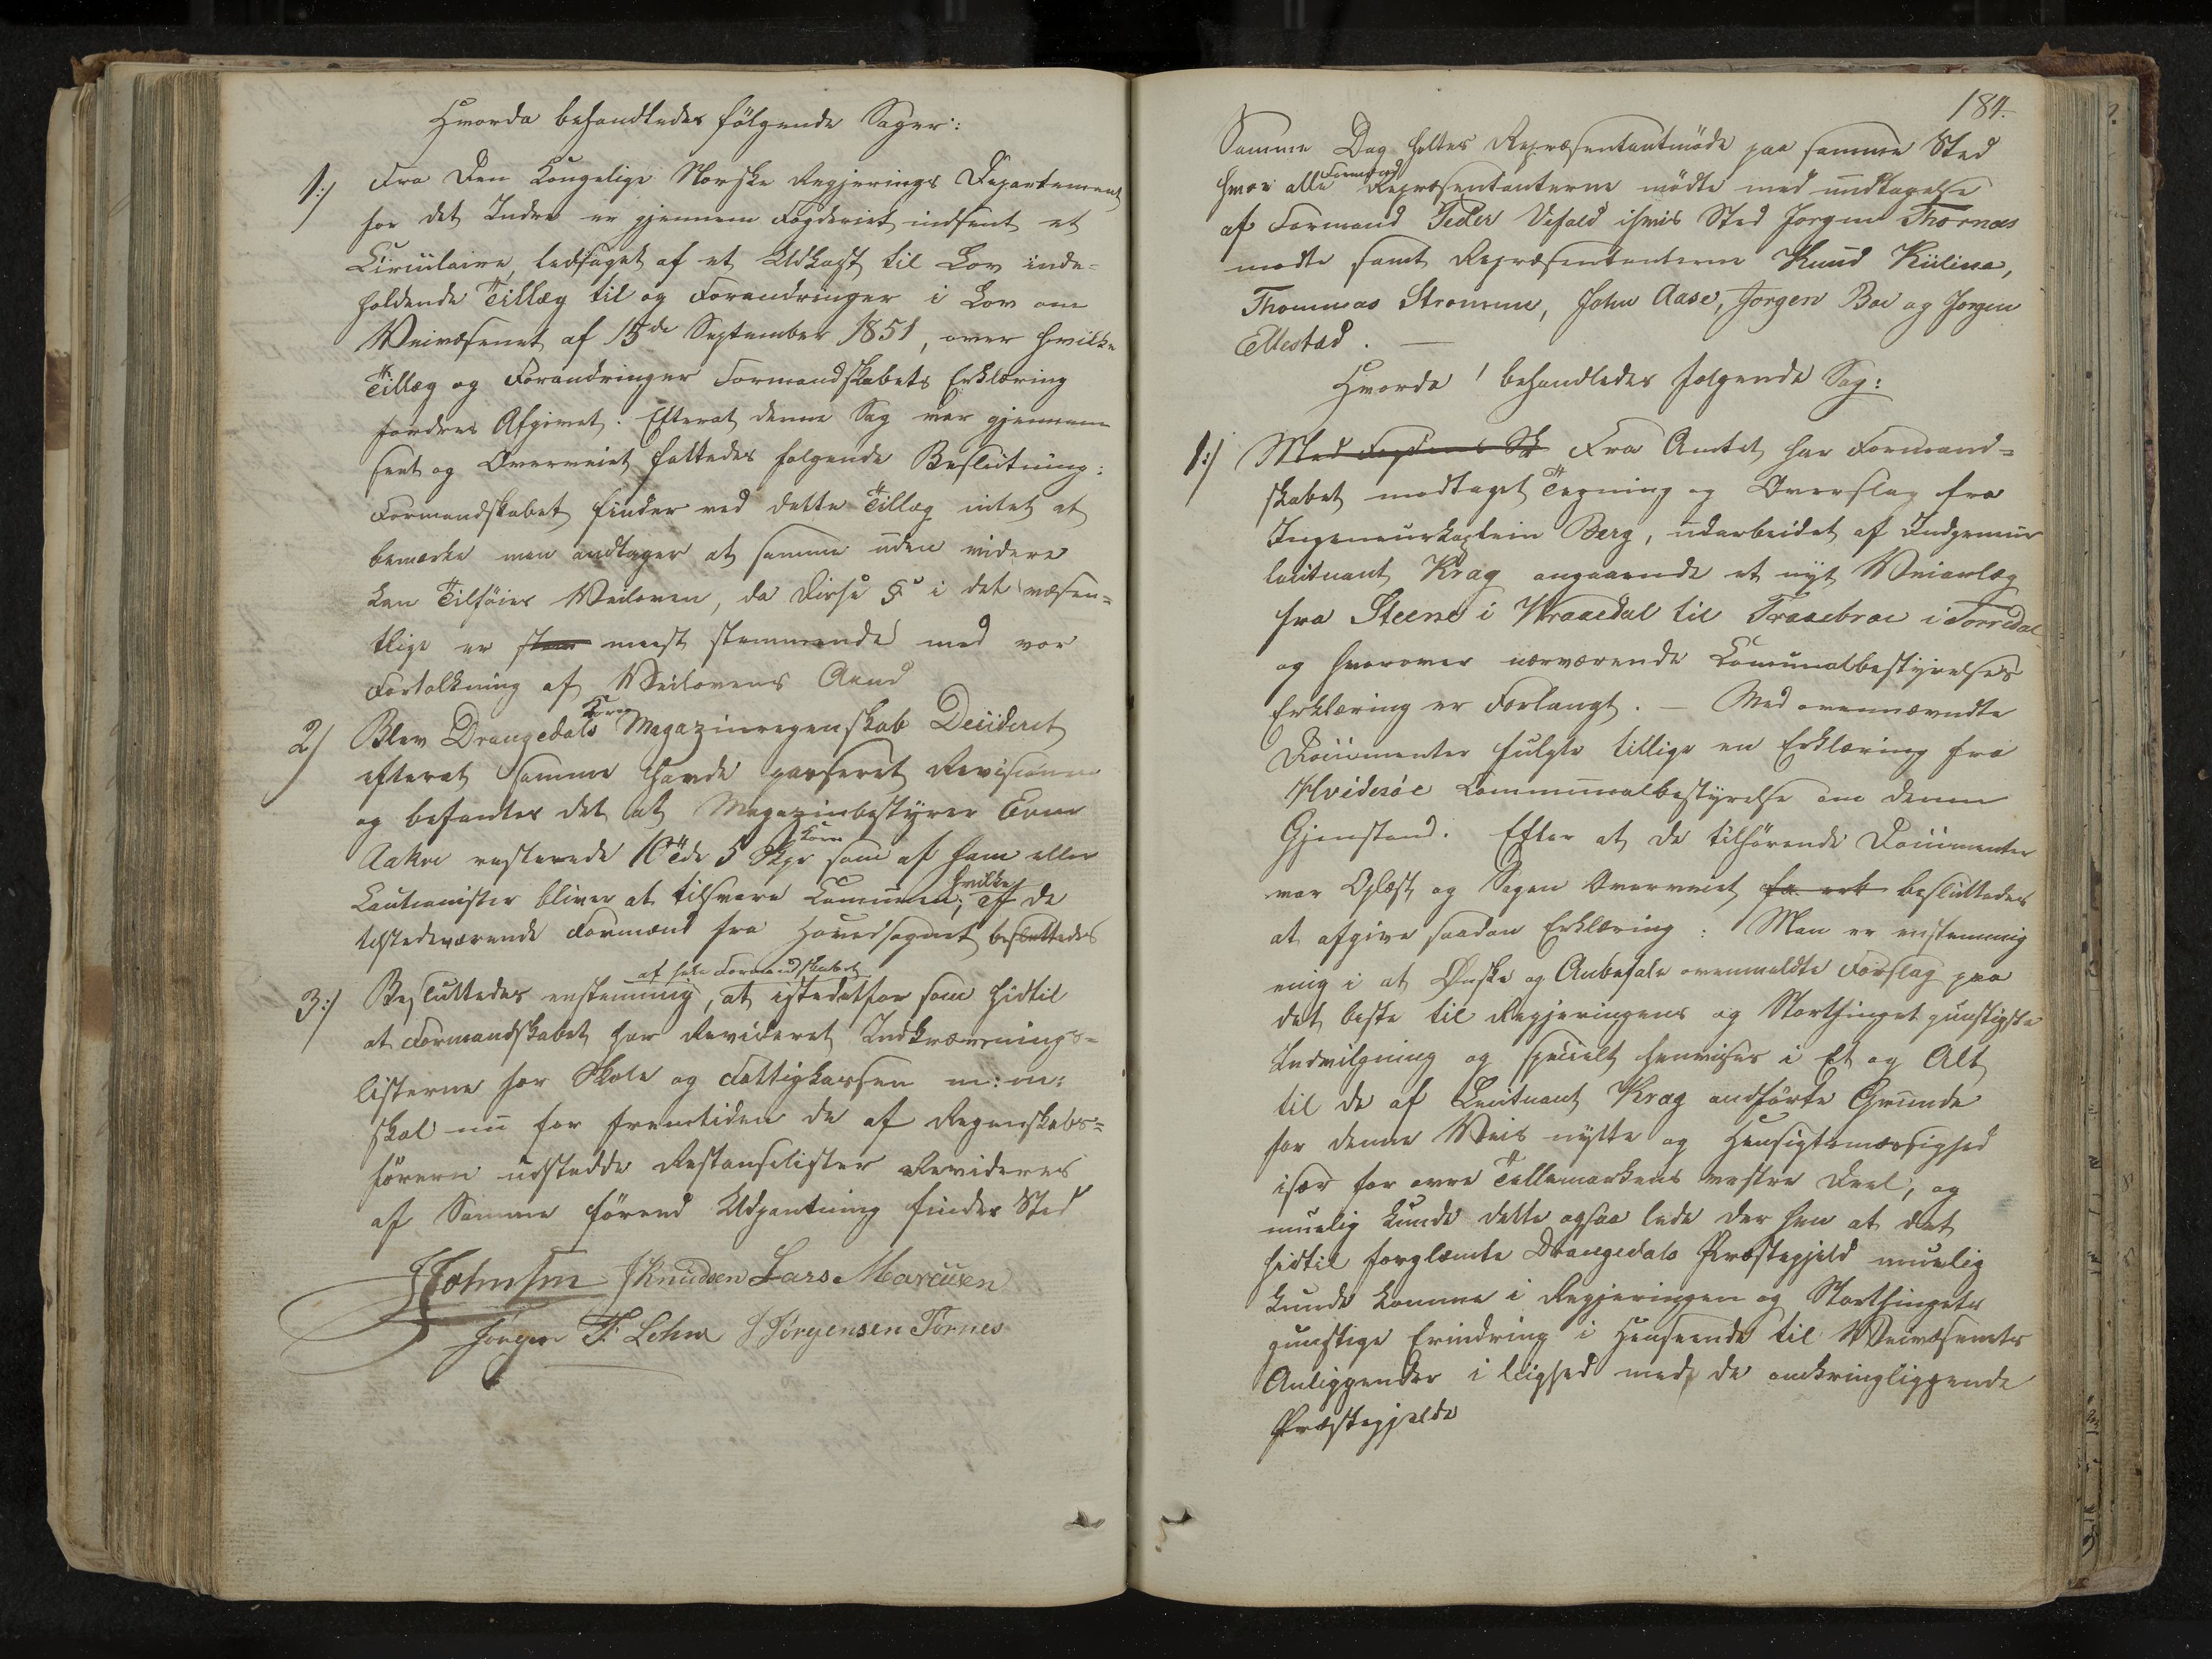 Hvorda behandledes følgende Sager:
1:/ Fra Den Kongelige Norske Regjerings Departement
for det Indre er gjennem Fogderiet indsent et
Circulaire, ledsaget af et Udkast til Lov inde-
holdende Tillæg til og Forandringer i Lov om
Veivæsenet af 15de September 1851, over hvilke
Tillæg og Forandringer Formandskabets Erklæring
fordres Afgivet. Efterat denne Sag var gjennem
seet og Overveiet fattedes følgende Beslutning:
Formandskabet finder ved dette Tillæg intet at
bemærke men andtager at samme uden videre
kan Tilføies Veiloven, da disse § i det væsen-
tlige er meest stemmende med vor
Fortolkning af Veilovens Aand
2/ Blev Drangedals Korn Magazinregnskab Deciideret
efterat samme havde passeret Revisionen
og befandtes det at Magazinbestyrer Even
Aakre resterede 10 Tdr 5 Skpr Korn som af ham eller
Cautionister bliver at tilsvare Comunen; af hvilke de
tilstedeværende Formænd fra Hovedsognet besluttedes
3:/ Besluttedes enstemmig af hele Formandskabet, at istedetfor som hidtil
at Formandskabet har Revideret Indkrævnings-
listerne for Skole og Fattigkassen m:m:
skal nu for fremtiden de af Regnskabs-
føreren udstedde Restanselister Revideres
af Samme førend Udpantning finder Sted
JJohnsen JKnudsen Lars Marcusen
Jørgen T. Lohne JJørgensen Tornes
184.
Samme Dag holtes Repræsentantmøde paa samme Sted
hvor alle Formænd Repræsentanterne mødte med undtagelse
af Formand Peder Vefald ihvis Sted Jørgen Thornæs
mødte samt Repræsentanterne Knud Kiilina,
Thommas Strømme, John Aase, Jørgen Boe og Jørgen
Ellestad. —
Hvorda behandledes følgende Sag:
1:/ Med Fogdens Sk Fra Amtet har Formand-
skabet modtaget Tegning og Overslag fra
Ingeneurkaptein Berg, udarbeidet af Indgeniur
leutnant Krag angaaende et nyt Veianlæg
fra Steene i Hvaaedal til Traaebroe i Torredal
og hvorover nærværende Comunalbestyrelses
Erklæring er Forlangt. — Med ovennævndte
Documenter fulgte tillige en Erklæring fra
Hvidesøe Communalbestyrelse om denne
Gjenstand. Efter at de tilhørende Documenter
var Oplæst og Sagen Overveiet besluttedes
at afgive saadan Erklæring: Man er enstemmig
enig i at Ønske og Anbefale ovenmeldte Forslag paa
det beste til Regjeringens og Storthinget gunstigste
Indvilgning og specielt henvises i Et og Alt
til de af Leutnant Krag andførte Grunde
for denne Veis nytte og Hensigtsmæssighed
især for øvre Tellemarkens vestre Deel, og
muelig kunde dette ogsaa lede der hen at det
hidtil forglæmte Drangedals Præstegjeld muelig
kunde komme i Regjeringen og Storthingets
gunstige Erindring i Henseende til Veivæsenets
Anliggender i liighed med de omkringliggende
Præstegjelde